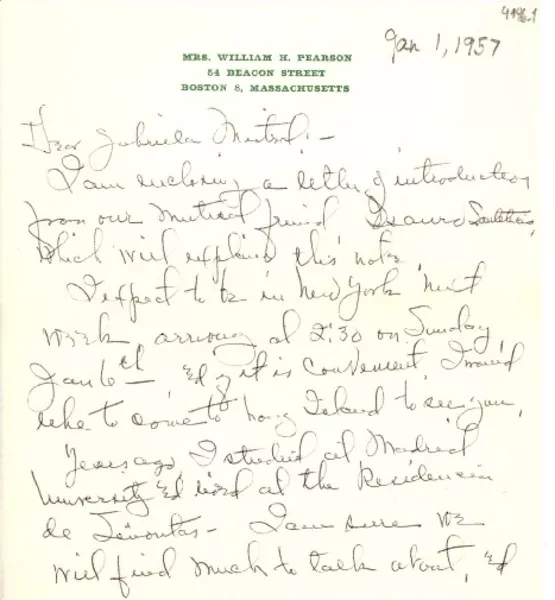 4196.1
Jan 1, 1957
MRS. WILLIAM H. PEARSON
54 BEACON STREET
BOSTON 8, MASSACHUSETTS
Dear Gabriela Mistral:-
I am enclosing a letter of introduction
from our mutual friend Isaura
which will explain this note.
I expect to be in New York next
week arriving at 2:30 on Sunday
Jan 6th - & if it is convenient, I would
like to come to Long Island to see you.
Years ago I studied at Madrid
University & lived at the Residencia
de Señoritas - I am sure we
will find much to talk about, &